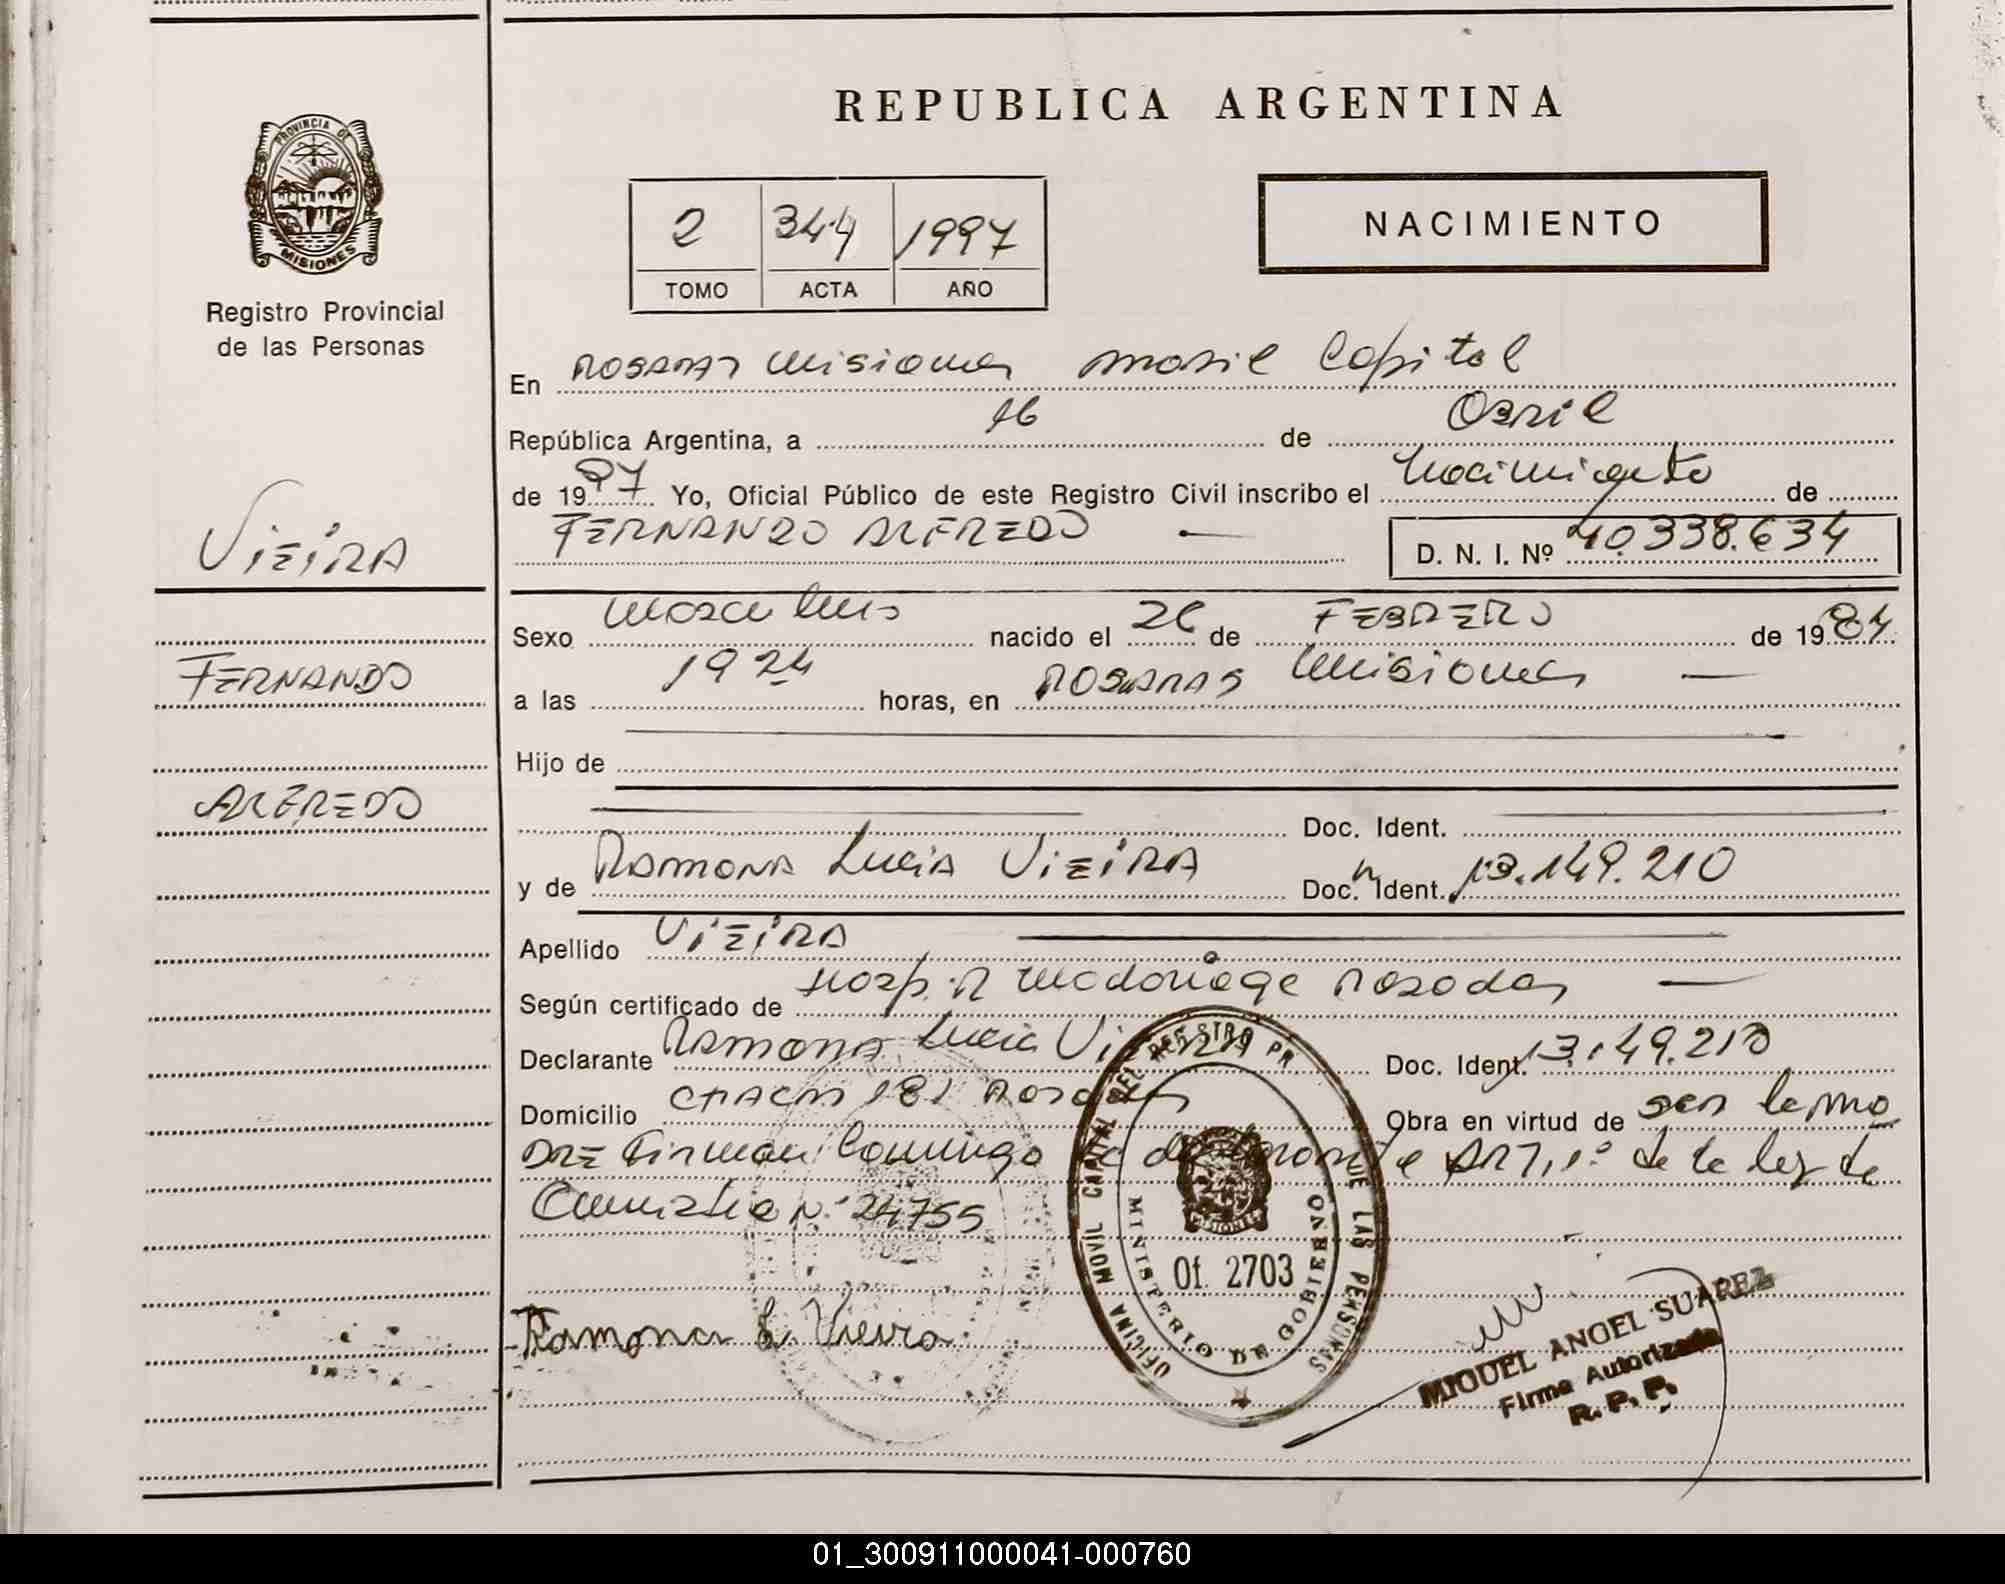 REPUBLICA ARGENTINA
PROVINCIA DE
MISIONES
Registro Provincial
de las Personas
2 344 1997
TOMO ACTA AÑO
NACIMIENTO
En Posadas Misiones Movil Capital
República Argentina, a 16 de Abril
de 1997 Yo, Oficial Público de este Registro Civil inscribo el Nacimiento de
FERNANDO ALFREDO — D. N. I. Nº 40.338.634
VIEIRA
FERNANDO
ALFREDO
Sexo Masculino nacido el 26 de FEBRERO de 1984
a las 1924 horas, en POSADAS Misiones —
Hijo de
Doc. Ident.
y de RAMONA Lucia VIEIRA Doc. Ident. 13.149.210
Apellido VIEIRA
Según certificado de Hosp. R Madariaga Posadas —
Declarante RAMONA Lucia Vieira Doc. Ident. 13.149.210
Domicilio CHACRA 181 Posadas Obra en virtud de ser la ma
DRE Firman Conmigo la declarante ART. 1° de la ley de
Amnistia N° 24755
Ramona L. Vieira
OFICINA MOVIL CAPITAL DEL REGISTRO PR DE LAS PERSONAS
MINISTERIO DE GOBIERNO
MISIONES
Of. 2703
MIGUEL ANGEL SUAREZ
Firma Autorizada
R. P. P.
01_300911000041-000760